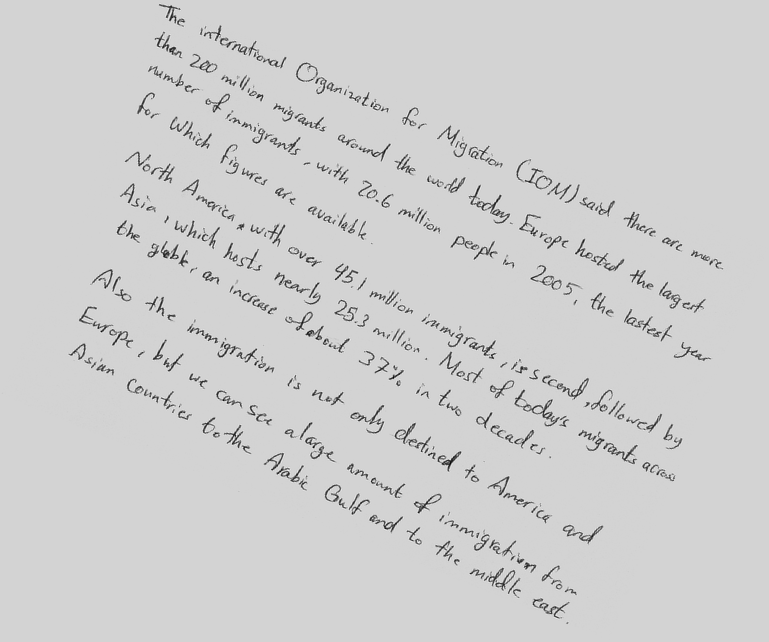 The international Organization for Migration (IOM) said there are more
than 200 million migrants around the world today. Europe hosted the largest
number of immigrants, with 70.6 million people in 2005, the lastest year
for which figures are available.
North America, with over 45.1 million immigrants, is second, followed by
Asia, which hosts nearly 25.3 million. Most of today's migrants across
the globle, an increase of about 37% in two decades.
Also the immigration is not only destined to America and
Europe, but we can see a large amount of immigration from
Asian countries to the Arabic Gulf and to the middle east.